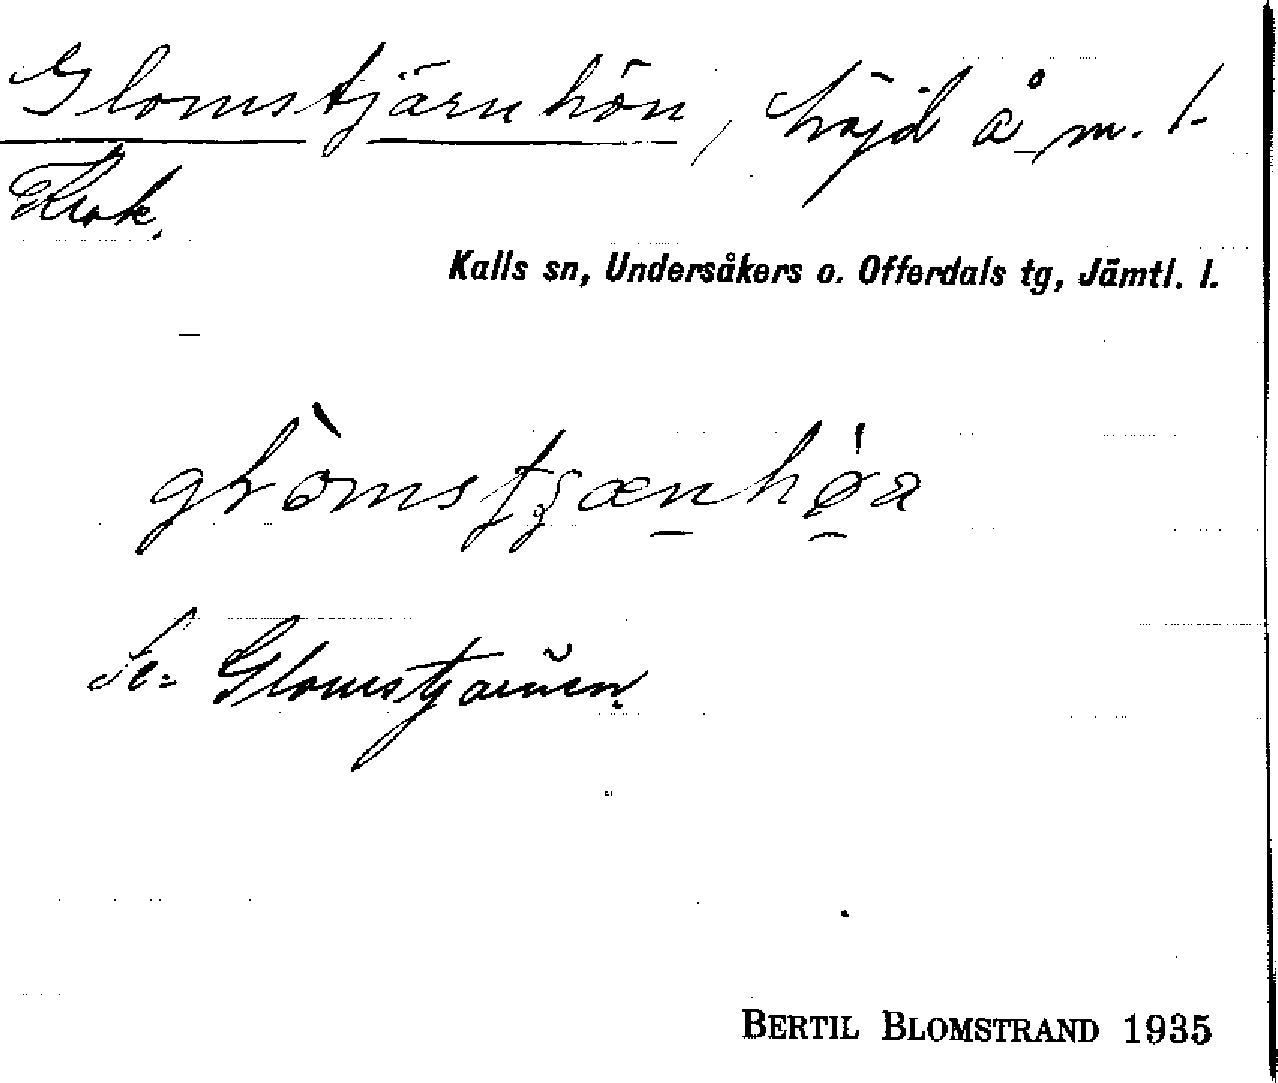 Glomstjärnhön, höjd å m. t.
Krok.
Kalls sn, Undersåkers o. Offerdals tg, Jämtl. l.
Se Glomstjärnen
BERTIL BLOMSTRAND 1935